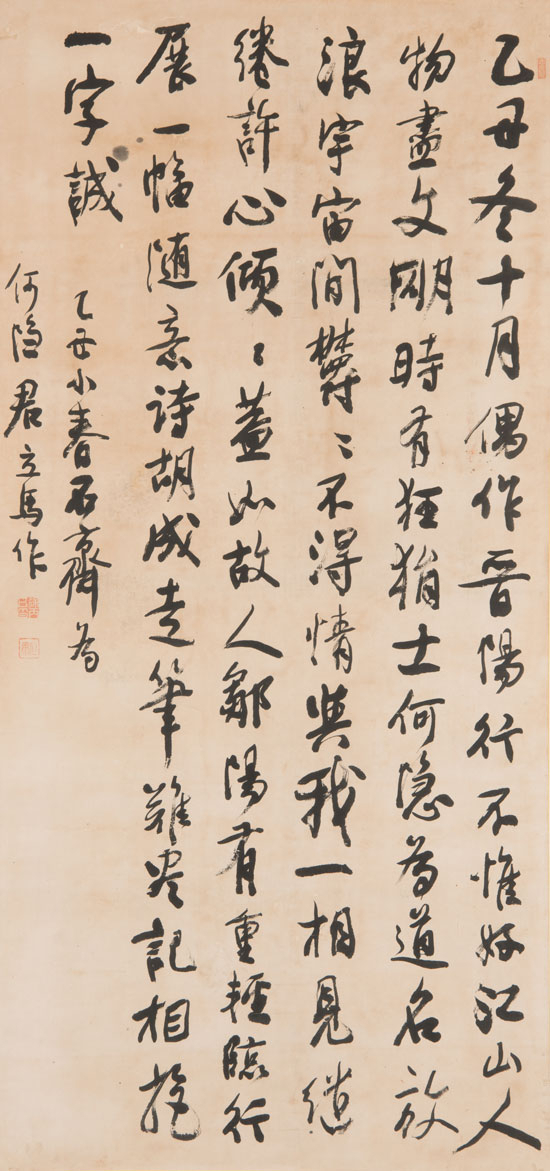 乙丑冬十月偶作晋陽行不惟好江山人
物盡文明時有狂狷士何隐為道名放
浪宇宙間欝〻不得情與我一相見缱
绻許心倾〻蓋如故人鄒陽有重輕臨行
展一幅随意诗胡成走筆難尽記相
一字誠
乙丑小春石齋為
何隐君立馬作